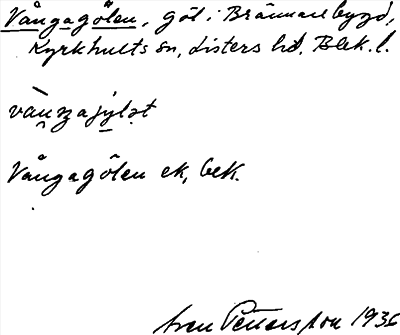 Vångagölen, göl i Brännarebygd,
Kyrkhults sn, Listers hd, Blek. l.
Vångagölen ek, bek.
Sven Pettersson 1936